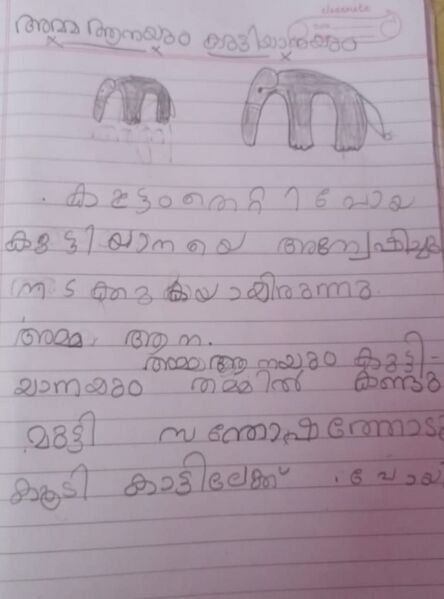 classmate
അമ്മ ആനയും കുട്ടിയാനയും
കൂട്ടം തെറ്റി പോയ
കുട്ടിയാനയെ അന്വേഷിച്ചു
നടക്കുകയായിരുന്നു
അമ്മ ആന.
അമ്മആനയും കുട്ടി-
യാനയും തമ്മിൽ കണ്ടു
മുട്ടി സന്തോഷത്തോടു
കൂടി കാട്ടിലേക്ക് പോയി